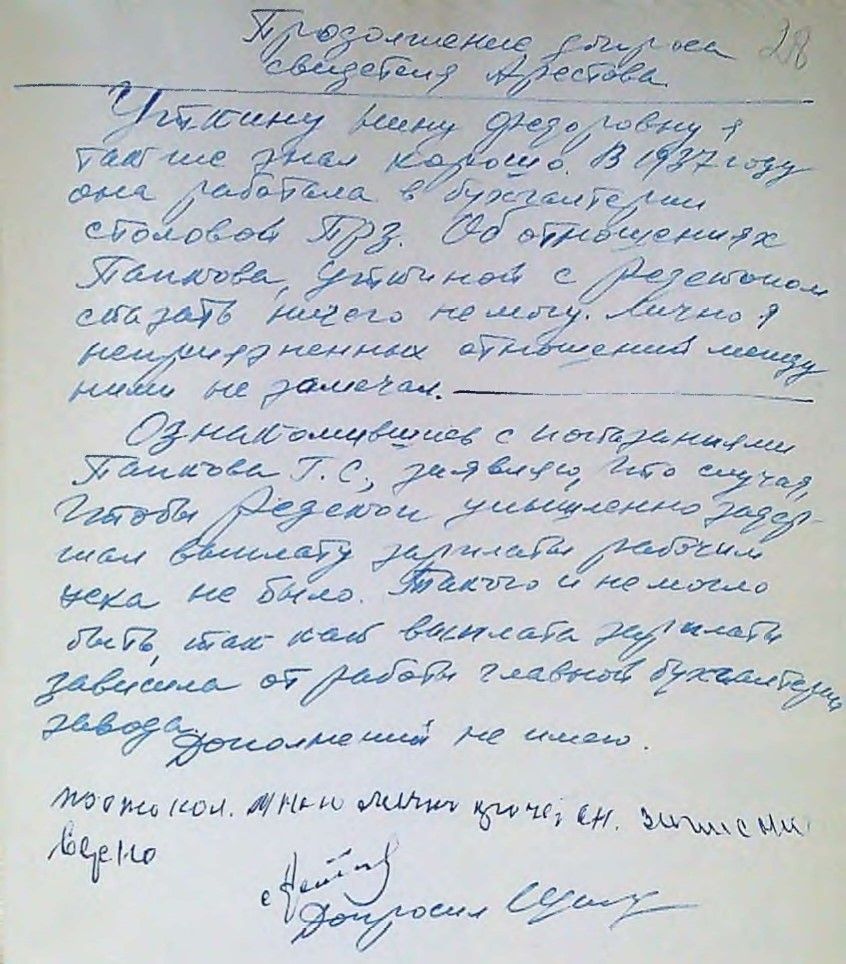 Продолжение допроса 28
свидетеля Арестова
Уткину Нину Федоровну я
также знал хорошо. В 1937 году
она работала в бухгалтерии
столовой ПРЗ. Об отношениях
Папкова, Уткиной с
сказать ничего не могу. Лично я
неприязненных отношений между
ними не замечал.
Ознакомившись с показаниями
Папкова Г.С., заявляю, что случая,
чтобы умышленно задер-
жал выплату зарплаты рабочим
цеха не было. Такого и не могло
быть, так как выплата зарплаты
зависила от работы главной бухгалтерии
завода.
Дополнений не имею.
протокол. мною лично прочитан. записано
верно
Допросил